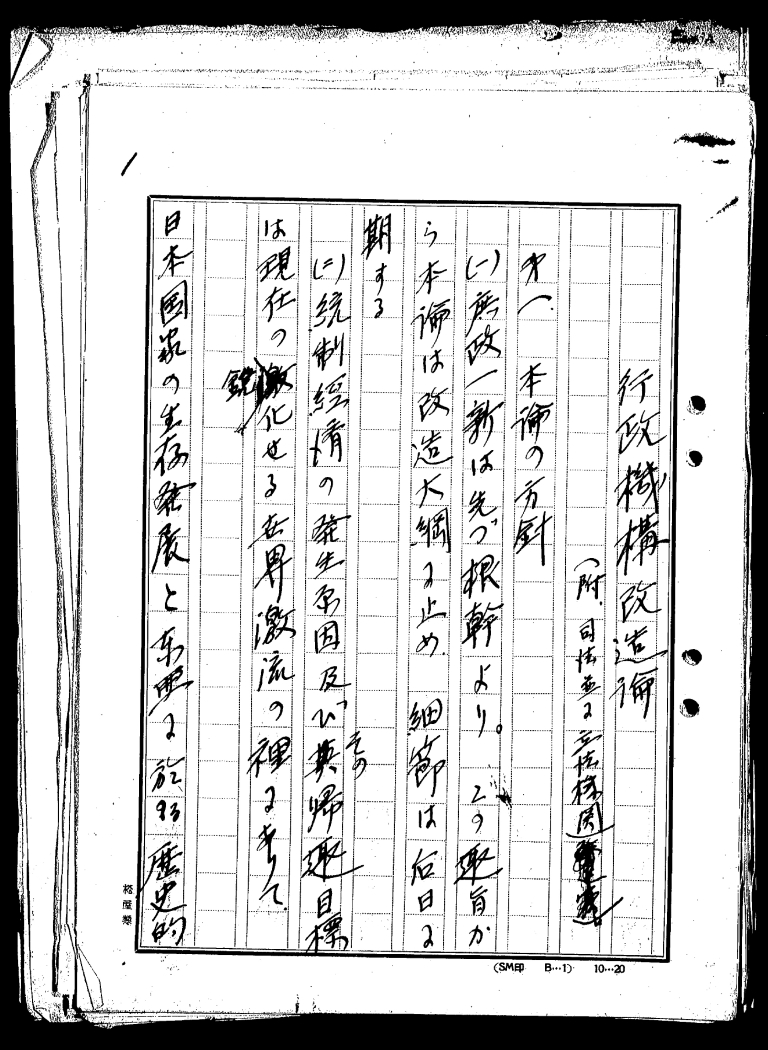 行政機構改造論
（附．司法並に立法機関
才一．本論の方針
(一)庶政一新は先づ根幹より。この趣旨か
ら本論は改造大綱に止め．細節は后日に
期する
(二)統制経済の発生原因及び其帰趣目標
その
は現在の激化せる世界激流の裡にありて．
鋭
日本国家の生存発展と东亜に於ける歴史的
(SM印 B…1) 10…20